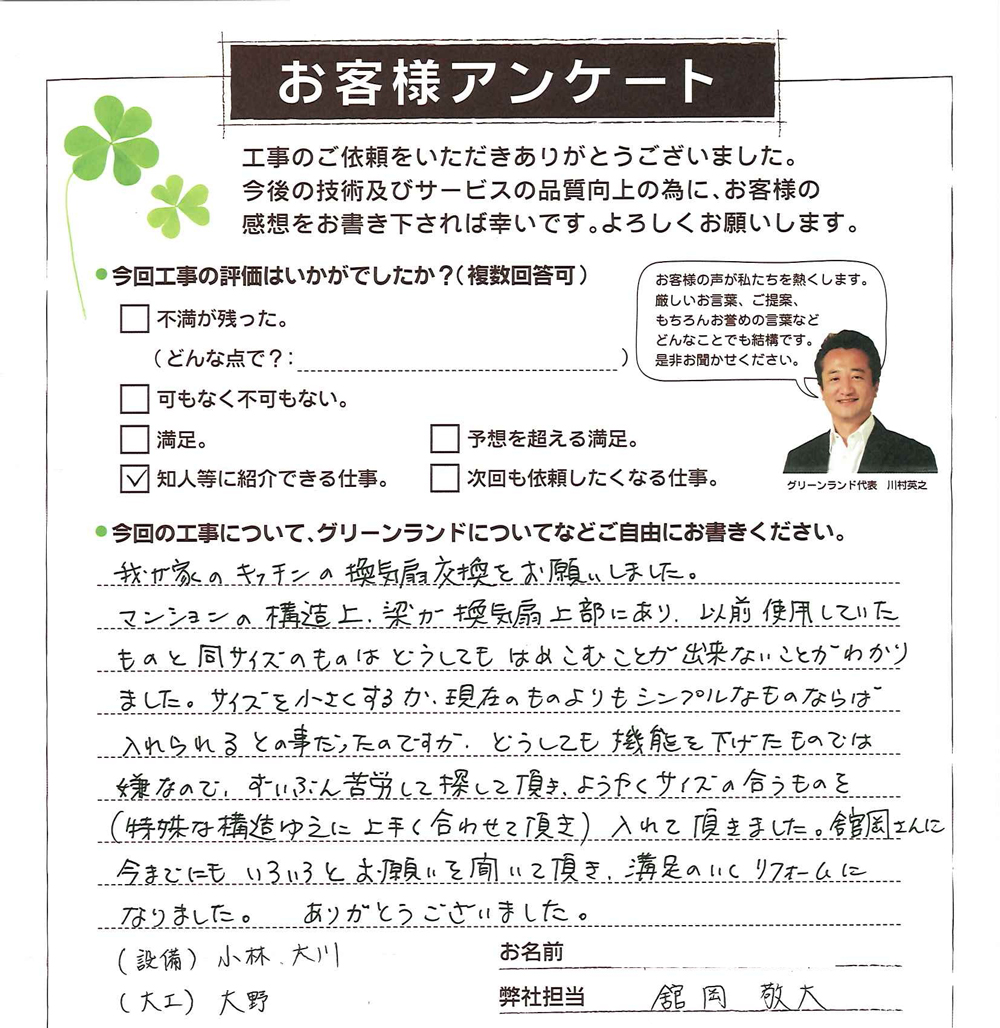 お客様アンケート
工事のご依頼をいただきありがとうございました。
今後の技術及びサービスの品質向上の為に、お客様の
感想をお書き下されば幸いです。よろしくお願いします。
●今回工事の評価はいかがでしたか？(複数回答可)
不満が残った。
(どんな点で？: )
可もなく不可もない。
満足。
予想を超える満足。
知人等に紹介できる仕事。
次回も依頼したくなる仕事。
お客様の声が私たちを熱くします。
厳しいお言葉、ご提案、
もちろんお誉めの言葉など
どんなことでも結構です。
是非お聞かせください。
グリーンランド代表 川村英之
●今回の工事について、グリーンランドについてなどご自由にお書きください。
我が家のキッチンの換気扇交換をお願いしました。
マンションの構造上、梁が換気扇上部にあり、以前使用していた
ものと同サイズのものはどうしてもはめこむことが出来ないことがわかり
ました。サイズを小さくするか、現在のものよりもシンプルなものならば
入れられるとの事だったのですが、どうしても機能を下げたものでは
嫌なので、ずいぶん苦労して探して頂き、ようやくサイズの合うものを
(特殊な構造ゆえに上手く合わせて頂き)入れて頂きました。舘岡さんに
今までにもいろいろとお願いを聞いて頂き、満足のいくリフォームに
なりました。 ありがとうございました。
(設備)小林、大川
(大工)大野
お名前
弊社担当 舘岡 敬大